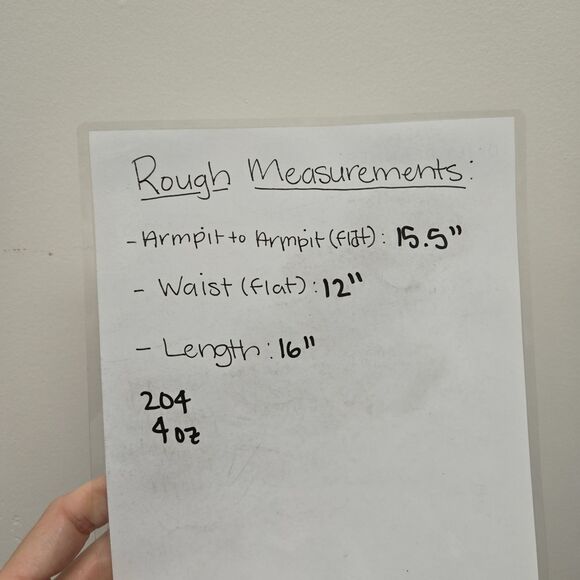 Rough Measurements:
- Armpit to Armpit (flat): 15.5"
- Waist (flat): 12"
- Length: 16"
204
4 oz